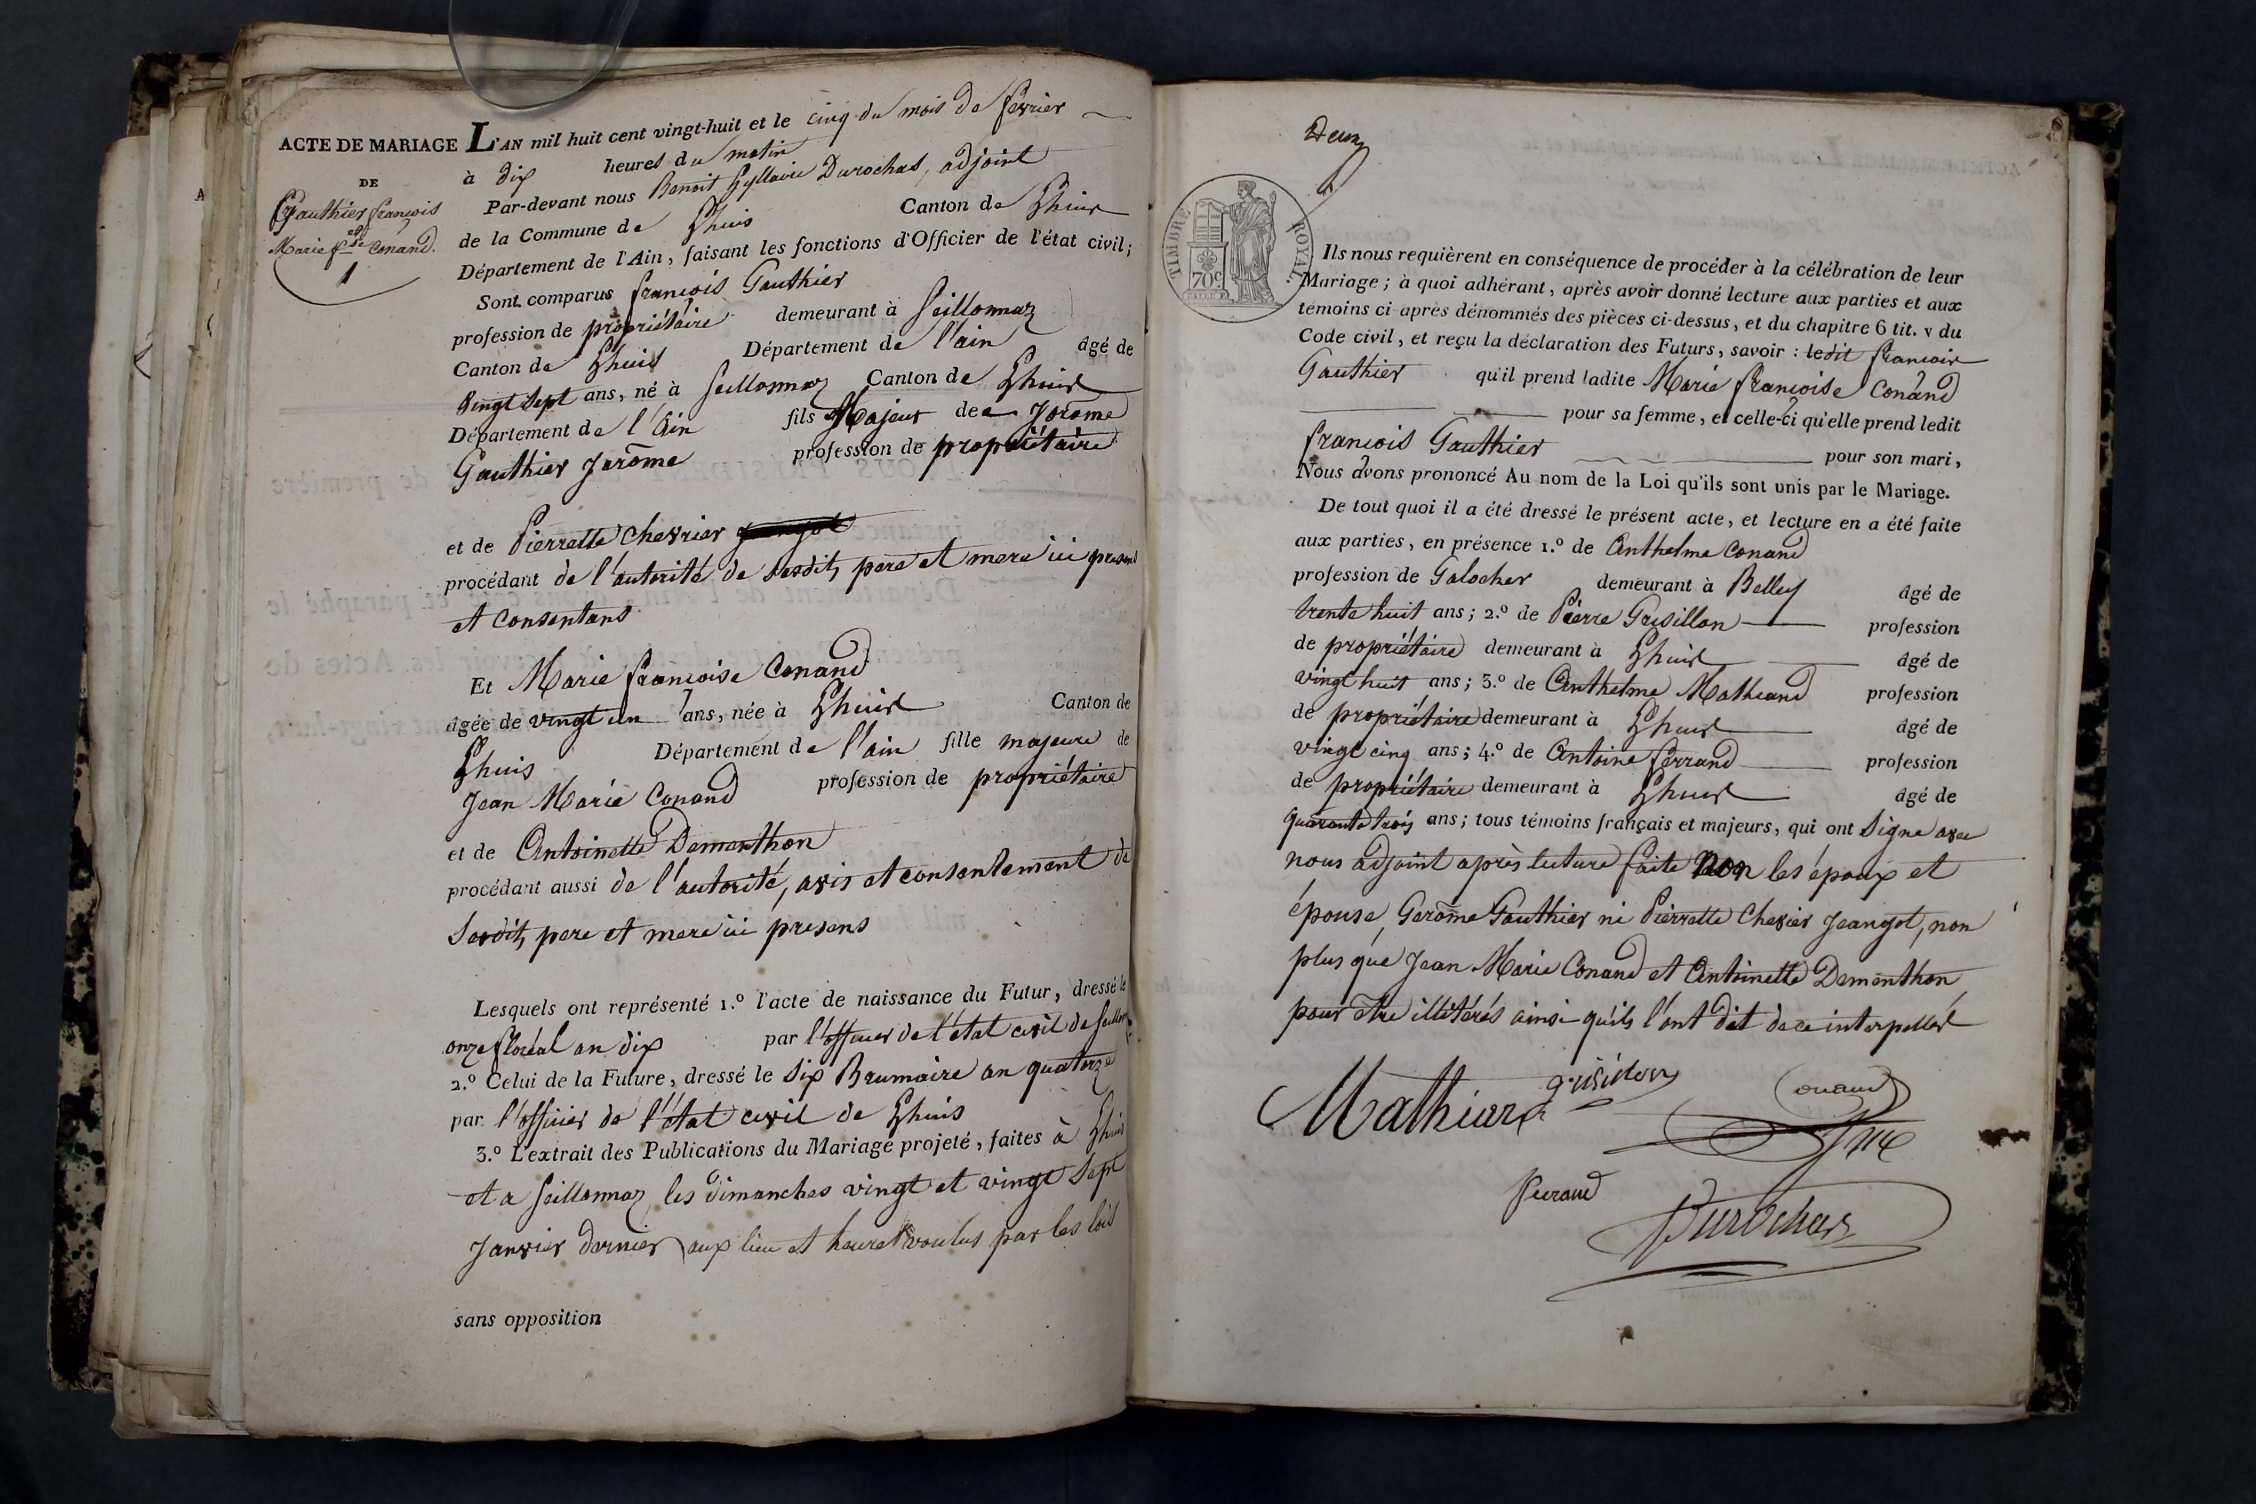 ACTE DE MARIAGE
DE
Gauthier françois
et
Marie fse Conand.
1
L'AN mil huit cent vingt-huit et le cinq du mois de fevrier
à dix heures du matin
Par-devant nous Benoit Durochat, adjoint
de la Commune de Lhuis Canton de Lhuis
Département de l'Ain, faisant les fonctions d'Officier de l'état civil;
Sont comparus françois Gauthier
profession de propriétaire demeurant à Seillonnaz
Canton de Lhuis Département de l'ain âgé de
vingt sept ans, né à Seillonnaz Canton de Lhuis
Département de l'Ain fils Majeur de Jerome
Gauthier Jerôme profession de propriétaire
et de Pierrette Chevrier
procédant de l'autorité de sesdits pere et mere ici present
et consentans
Et Marie françoise Conand
âgée de vingt un ans, née à Lhuis Canton de
Lhuis Département de l'ain fille majeure de
Jean Marie Conand profession de propriétaire
et de Antoinette Dementhon
procédant aussi de l'autorité, avis et consentement de
Sesdits pere et mere ici presens
Lesquels ont représenté 1.º l'acte de naissance du Futur, dressé le
onze floréal an dix par l'officier de l'état civil de
2.º Celui de la Future, dressé le six Brumaire an quatorze
par l'officier de l'état civil de Lhuis
3.º L'extrait des Publications du Mariage projeté, faites à Lhuis
et a Seillonnaz les dimanches vingt et vingt sept
Janvier dernier aux lieu et heures voulus par les lois
sans opposition
Deux
TIMBRE ROYAL
70 c.
Ils nous requièrent en conséquence de procéder à la célébration de leur
Mariage; à quoi adhérant, après avoir donné lecture aux parties et aux
témoins ci-après dénommés des pièces ci-dessus, et du chapitre 6 tit. v du
Code civil, et reçu la déclaration des Futurs, savoir: ledit francois
Gauthier qu'il prend ladite Marie françoise Conand
pour sa femme, et celle-ci qu'elle prend ledit
francois Gauthier pour son mari,
Nous avons prononcé Au nom de la Loi qu'ils sont unis par le Mariage.
De tout quoi il a été dressé le présent acte, et lecture en a été faite
aux parties, en présence 1.º de Anthelme Conand
profession de Galocher demeurant à Belley âgé de
trente huit ans; 2.º de Pierre Grisillon profession
de propriétaire demeurant à Lhuis âgé de
vingt huit ans; 3.º de Anthelme Mathiand profession
de propriétaire demeurant à Lhuis âgé de
vingt cinq ans; 4.º de Antoine ferrand profession
de propriétaire demeurant à Lhuis âgé de
quarante trois ans; tous témoins français et majeurs, qui ont Signé avec
nous adjoint après lecture faite non les époux et
épouse, Gerôme Gauthier ni Pierrette Chevrier Jeangot, non
plus que Jean Marie Conand et Antoinette Dementhon
pour être illitérés ainsi qu'ils l'ont dit de ce interpellés
Mathian grisillon Conand
Ferrand
Durochat